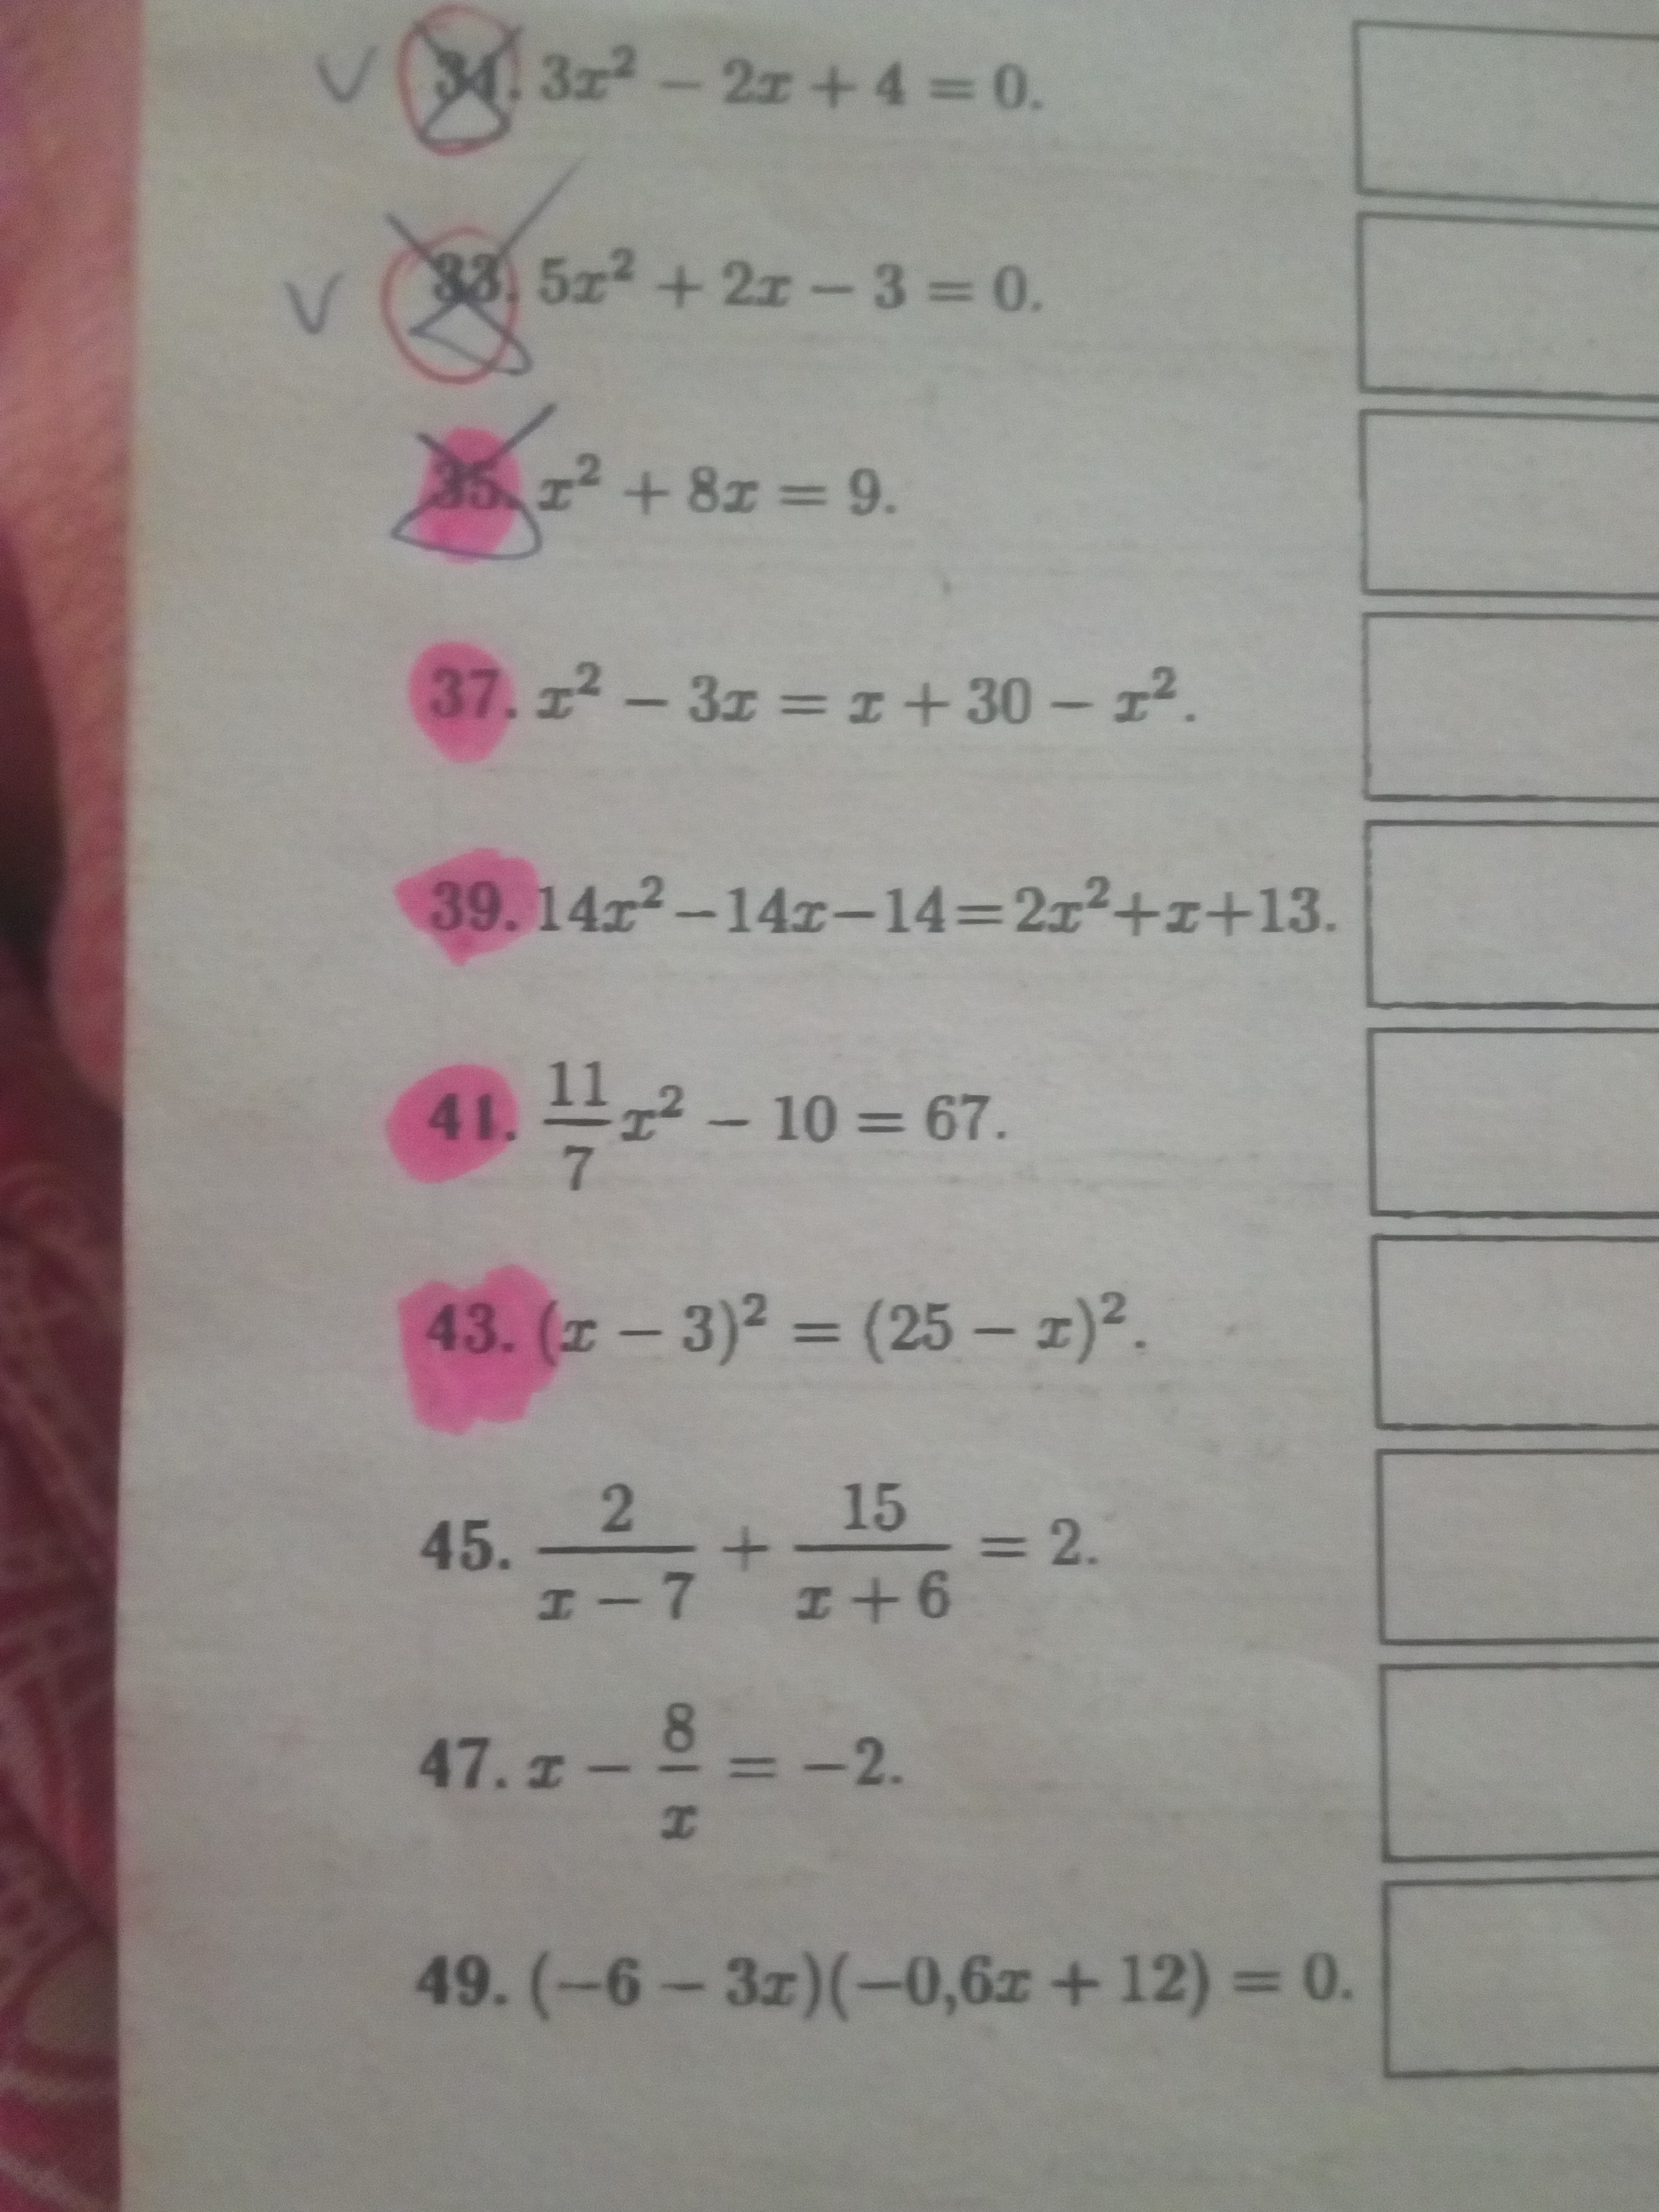 V 31. 3x² − 2x + 4 = 0.
V 33. 5x² + 2x − 3 = 0.
35. x² + 8x = 9.
37. x² − 3x = x + 30 − x².
39. 14x²−14x−14=2x²+x+13.
41. 11/7 x² − 10 = 67.
43. (x − 3)² = (25 − x)².
45. 2/(x − 7) + 15/(x + 6) = 2.
47. x − 8/x = −2.
49. (−6 − 3x)(−0,6x + 12) = 0.